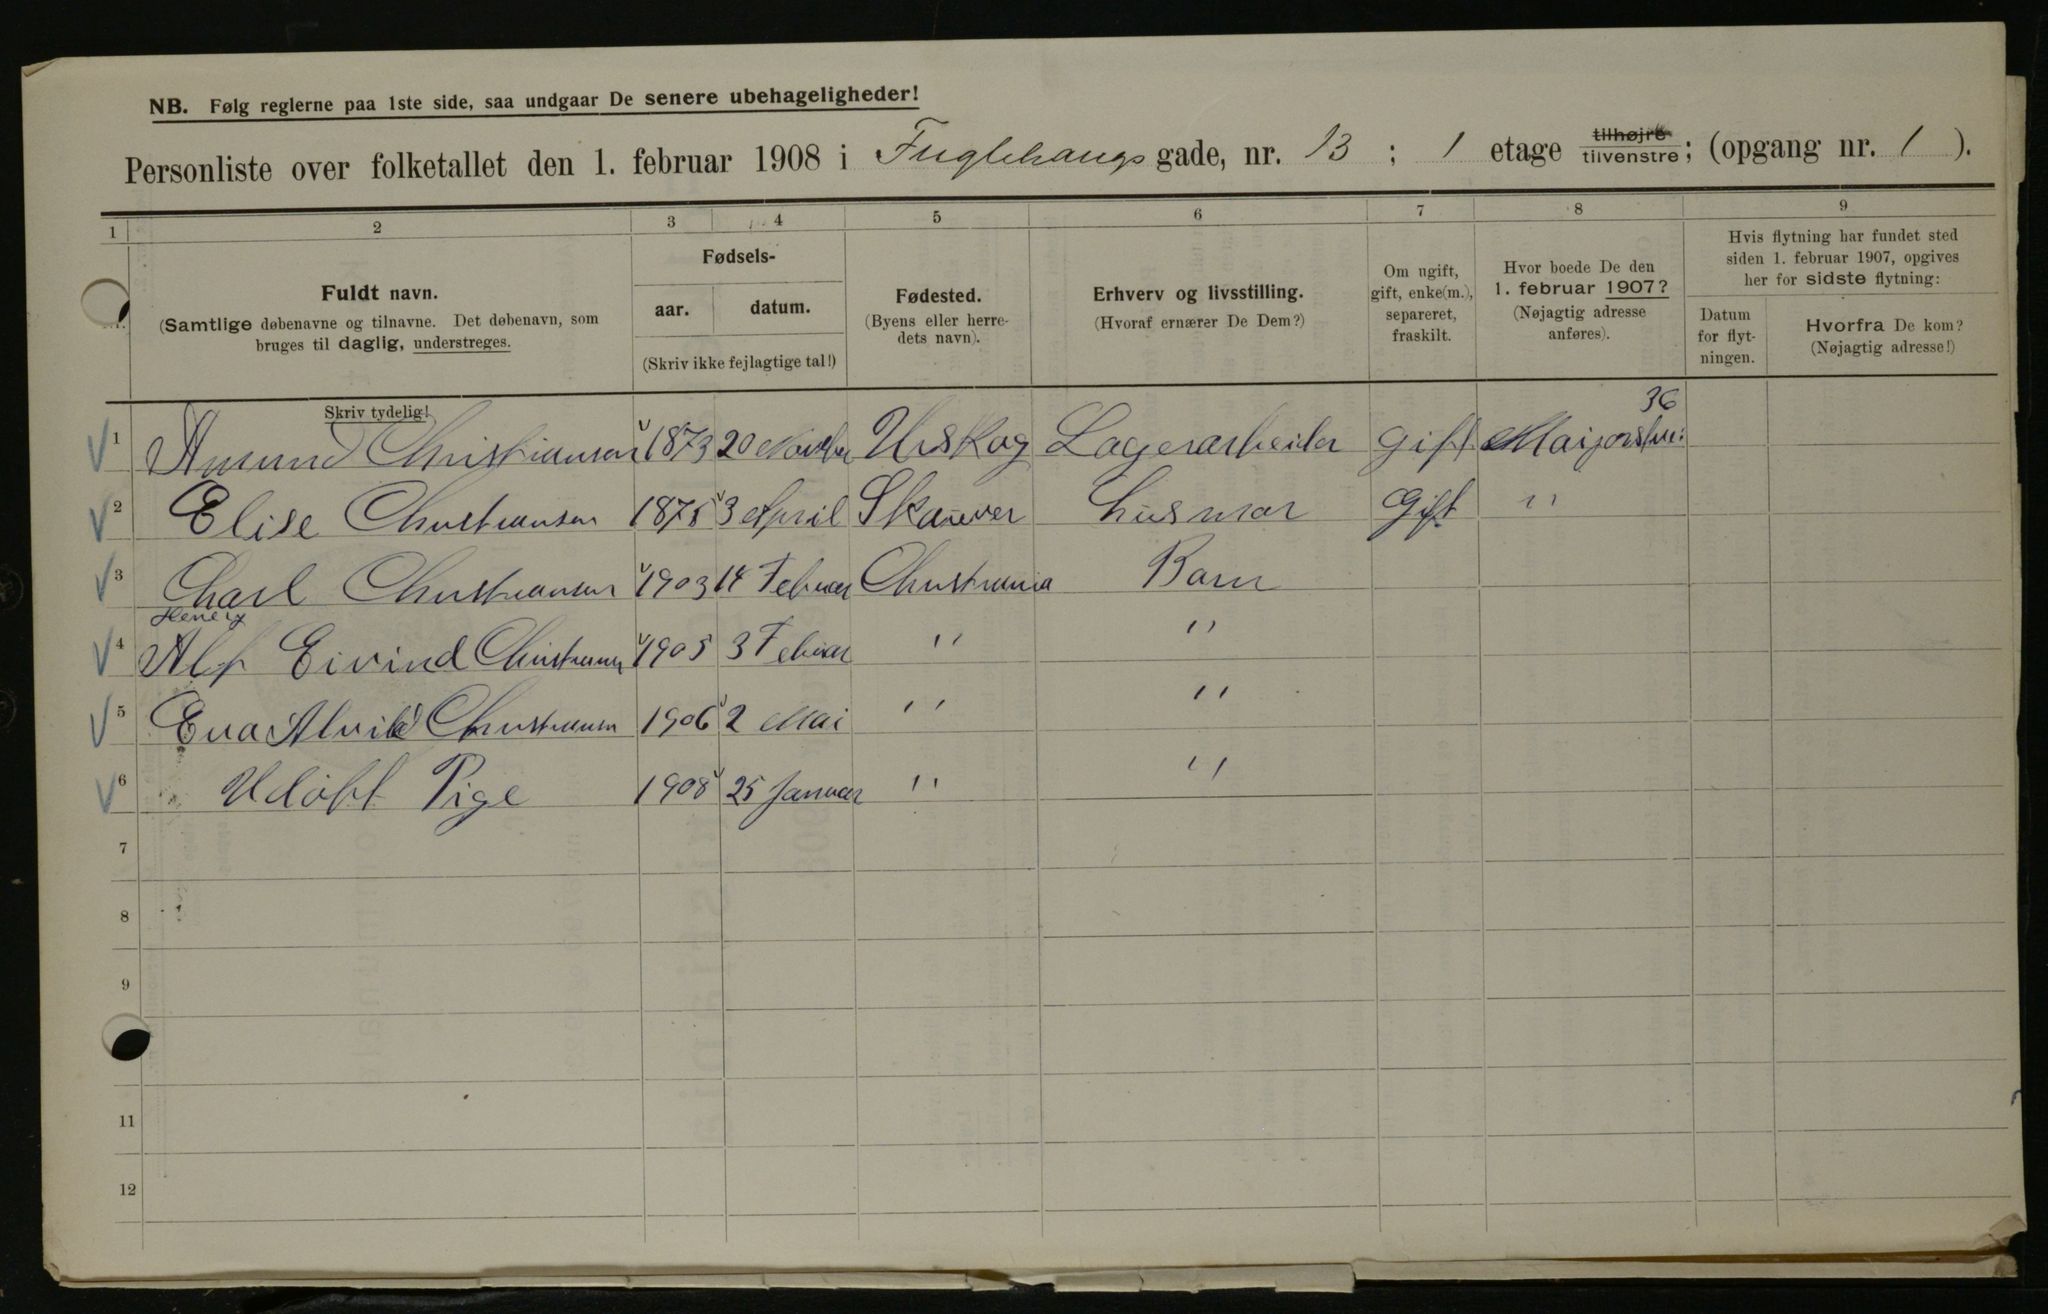 NB. Følg reglerne paa 1ste side, saa undgaar De senere ubehageligheder!
Personliste over folketallet den 1. februar 1908 i Fuglehaugs gade, nr. 13 ; 1 etage tilhøjre tilvenstre; (opgang nr. 1 ).
1 2 3 4 5 6 7 8 9
Fuldt navn.
(Samtlige døbenavne og tilnavne. Det døbenavn, som
bruges til daglig, understreges.
Skriv tydelig!
Fødsels-
aar. datum.
(Skriv ikke fejlagtige tal!)
Fødested.
(Byens eller herre-
dets navn).
Erhverv og livsstilling.
(Hvoraf ernærer De Dem?)
Om ugift,
gift, enke(m.),
separeret,
fraskilt.
Hvor boede De den
1. februar 1907?
(Nøjagtig adresse
anføres).
Hvis flytning har fundet sted
siden 1. februar 1907, opgives
her for sidste flytning:
Datum
for flyt-
ningen.
Hvorfra De kom?
(Nøjagtig adresse!)
36
1 Amund Christiansen 1873 20 Urskog Lagerarbeider Gift
2 Elise Christiansen 1875 3 April Skauver husmor Gift "
3 Charl Christiansen 1903 14 Februar Christiania Barn
Henery
4 Alf Eivind Christiansen 1905 3 Februar " "
5 Eva Alvild Christiansen 1906 2 Mai " "
6 Udöbt Pige 1908 25 Januar " "
7
8
9
11
12